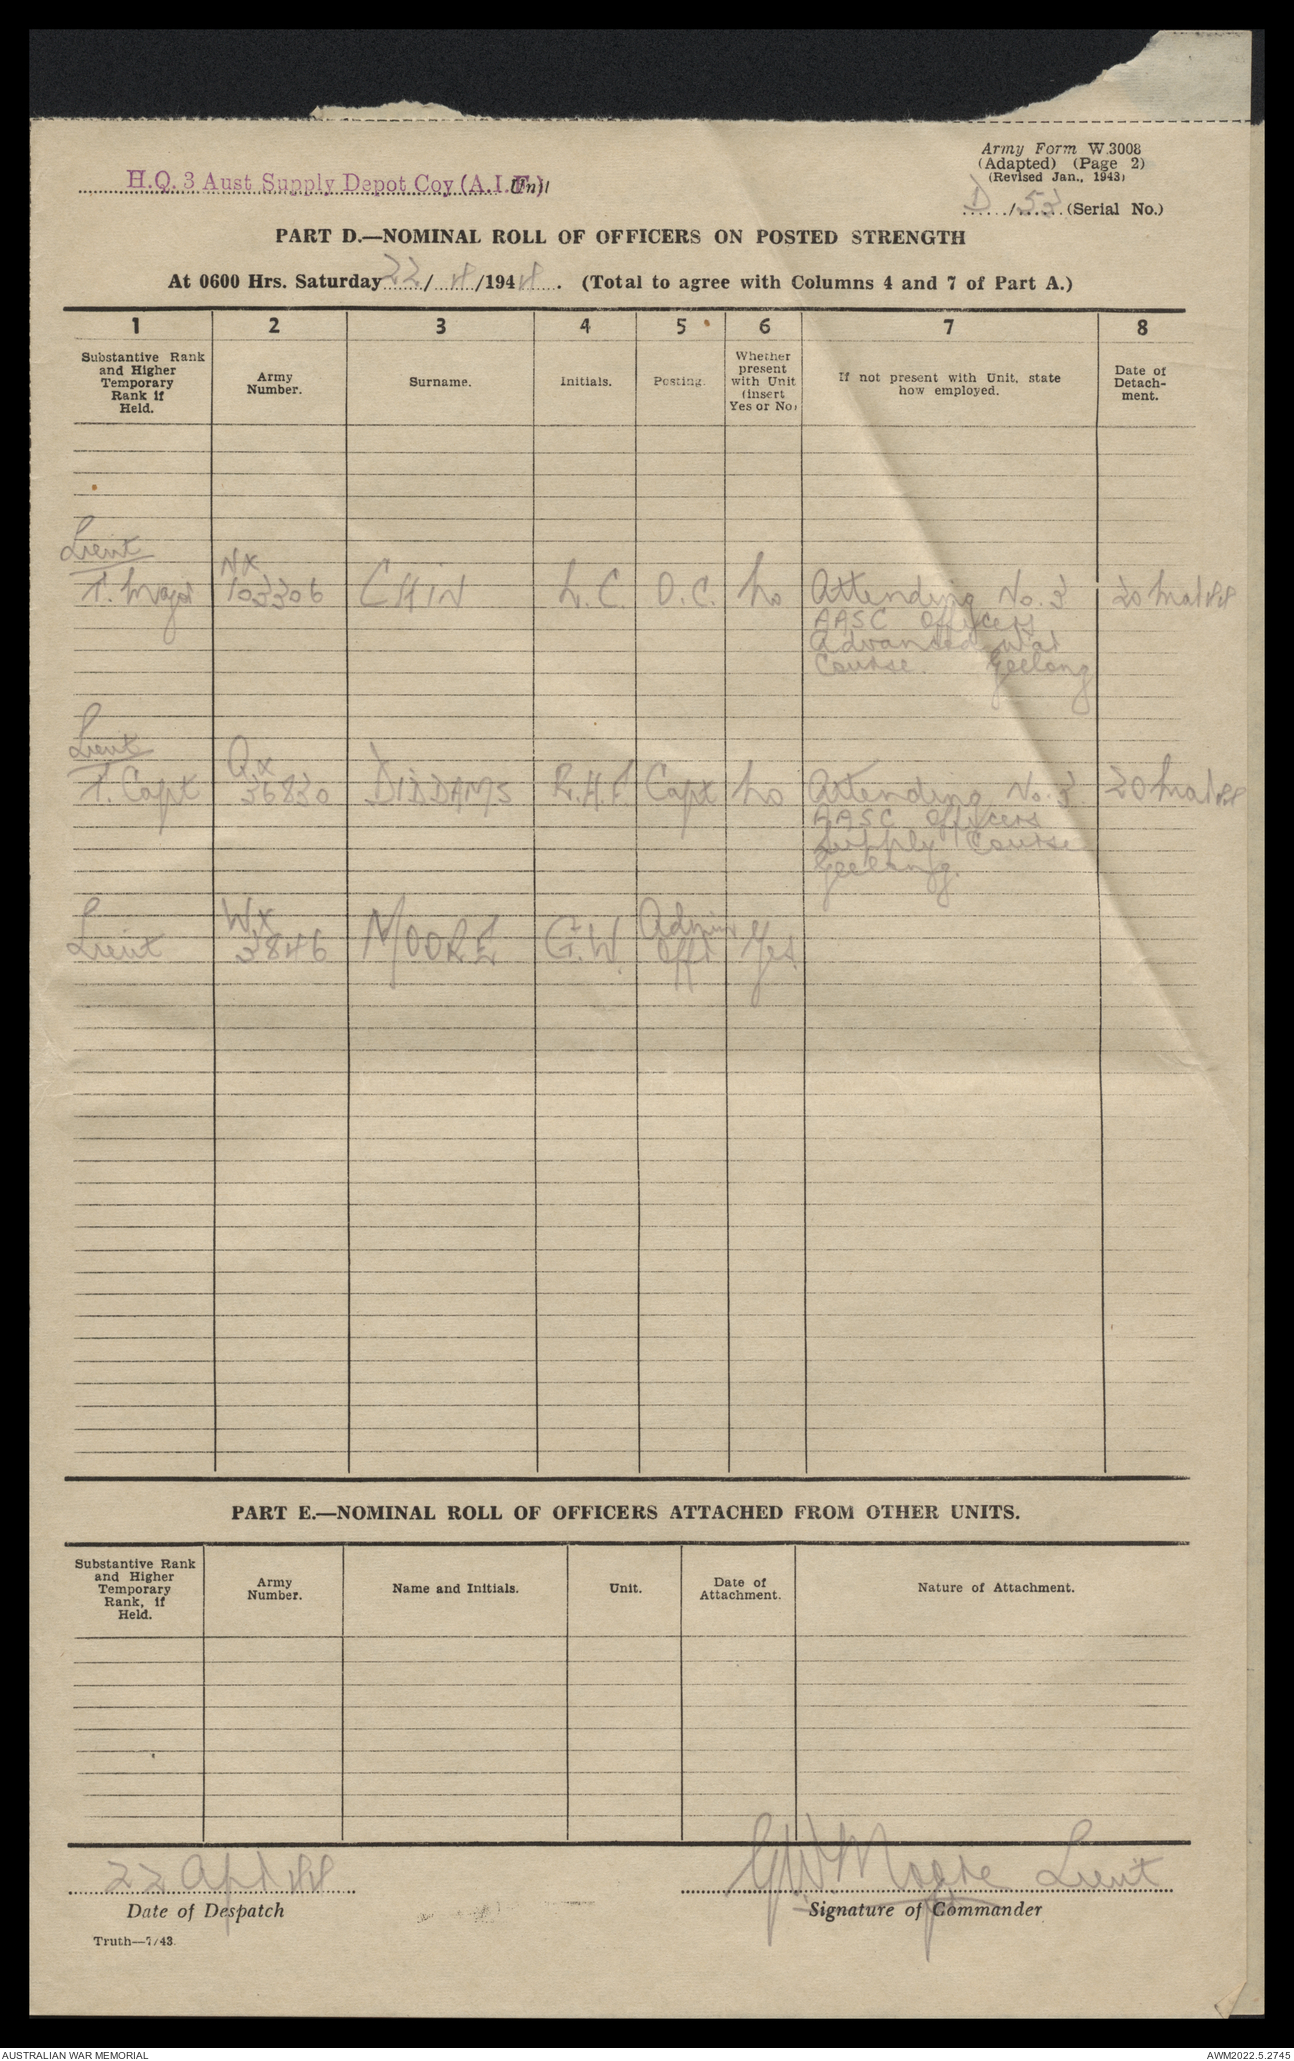 Army Form W.3008
(Adapted) (Page 2)
(Revised Jan., 1943)
H.Q. 3 Aust Supply Depot Coy (A.I.F.) Unit
D/53 (Serial No.)
PART D.—NOMINAL ROLL OF OFFICERS ON POSTED STRENGTH
At 0600 Hrs. Saturday 22/4/1944. (Total to agree with Columns 4 and 7 of Part A.)
1 2 3 4 5 6 7 8
Substantive Rank
and Higher
Temporary
Rank if
Held.
Army
Number.
Surname.
Initials.
Posting.
Whether
present
with Unit
(insert
Yes or No)
If not present with Unit, state
how employed.
Date of
Detach-
ment.
Lieut
T. Major
NX
103306
CHIN
L.C.
O.C.
No
Attending No. 3
AASC Officers
Advanced War
Course. Geelong
20 Mar 44
Lieut
T. Capt
QX
36830
DIDDAMS
R.H.F.
Capt
No
Attending No. 3
AASC Officers
Supply Course
Geelong.
20 Mar 44
Lieut
WX
3846
MOORE
G.W.
Admin
Offr
Yes.
PART E.—NOMINAL ROLL OF OFFICERS ATTACHED FROM OTHER UNITS.
Substantive Rank
and Higher
Temporary
Rank, if
Held.
Army
Number.
Name and Initials.
Unit.
Date of
Attachment.
Nature of Attachment.
22 Apr 44
GW Moore Lieut
Date of Despatch
Signature of Commander
Truth—7/43.
AUSTRALIAN WAR MEMORIAL
AWM2022.5.2745